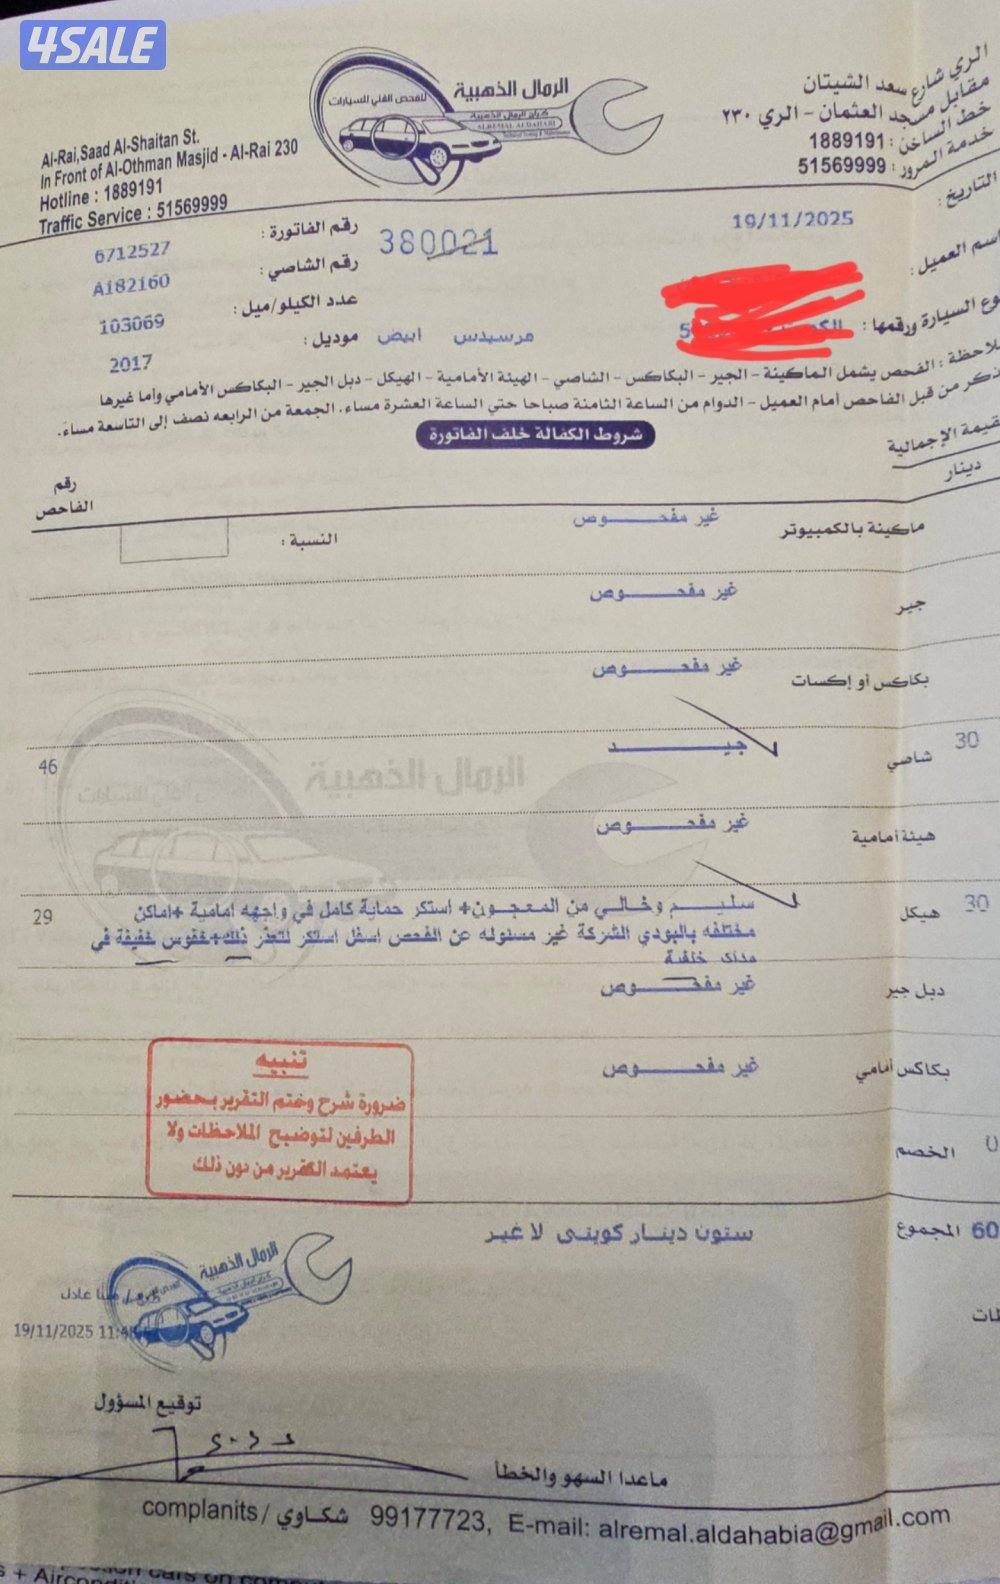 4SALE
الري شارع سعد الشيتان
مقابل مسجد العثمان - الري ٢٣٠
خط الساخن : 1889191
خدمة المرور : 51569999
الرمال الذهبية
للفحص الفني للسيارات
كراج الرمال الذهبية
ALREMAL ALDAHABI
Al-Rai,Saad Al-Shaitan St.
In Front of Al-Othman Masjid - Al-Rai 230
Hotline : 1889191
Traffic Service : 51569999
التاريخ : 19/11/2025
380021
رقم الفاتورة : 6712527
اسم العميل :
رقم الشاصي : A182160
وع السيارة ورقمها :
عدد الكيلو/ميل : 103069
مرسيدس ابيض
موديل : 2017
لاحظة : الفحص يشمل الماكينة - الجير - البكاكس - الشاصي - الهيئة الأمامية - الهيكل - دبل الجير - البكاكس الأمامي وأما غيرها
ذكر من قبل الفاحص أمام العميل - الدوام من الساعة الثامنة صباحا حتى الساعة العشرة مساء. الجمعة من الرابعه نصف إلى التاسعة مساءً.
شروط الكفالة خلف الفاتورة
قيمة الإجمالية
دينار
رقم
الفاحص
ماكينة بالكمبيوتر غير مفحـــوص النسبة :
جير غير مفحـــوص
بكاكس أو إكسات غير مفحـــوص
30 شاصي جيـــد 46
هيئة أمامية غير مفحـــوص
30 هيكل سليـــم وخالي من المعجـون+ استكر حماية كامل في واجهه امامية +اماكن 29
مختلفه بالبودي الشركة غير مسئوله عن الفحص اسفل استكر لتعذر ذلك+خفوس خفيفة في
خلفية
دبل جير غير مفحـــوص
بكاكس أمامي غير مفحـــوص
الخصم
تنبيه
ضرورة شرح وختم التقرير بحضور
الطرفين لتوضيح الملاحظات ولا
يعتمد التقرير من دون ذلك
60 المجموع ستون دينـار كويتى لا غير
الرمال الذهبية
عادل
19/11/2025
توقيع المسؤول
ماعدا السهو والخطأ
complanits/ شكـاوي 99177723, E-mail: alremal.aldahabia@gmail.com